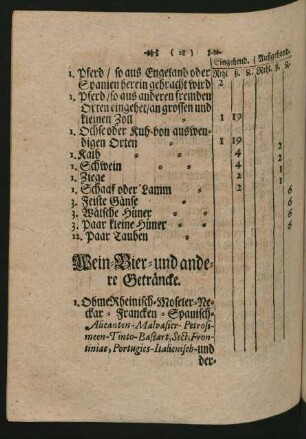 ( 18 )
Eingehend. | Außgehend.
Rthl. ß. ₰. Rthl. ß. ₰.
1. Pferd / so aus Engeland oder
Spanien herein gebracht wird 2
1. Pferd / so aus anderen fremden
Orten eingehet / an grossen und
kleinen Zoll 1 19
1. Ochse oder Kuh von auswen-
digen Orten 1 19
1. Kalb 4 2
1. Schwein 4 2
1. Ziege 2 1
1. Schaaf oder Lamm 2 1
3. Feiste Gänse 6
3. Wälsche Hüner 6
3. Paar kleine Hüner 6
12. Paar Tauben
Wein-Bier- und ande-
re Geträncke.
1. Ohme Rheinisch-Moseler-Ne-
ckar-Francken-Spanisch-
Alicanten-Malvasier-Petrosi-
meen-Tinto-Bastart, Sect, Fron-
tiniac, Portugies-Italienisch-und
der-